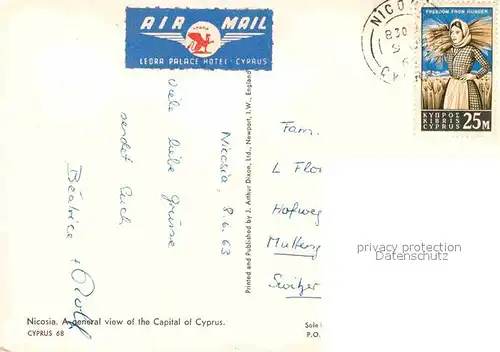 AIR MAIL
LEDRA PALACE HOTEL · CYPRUS
NICO
830
FREEDOM FROM HUNGER
ΚΥΠΡΟΣ
KIBRIS
CYPRUS 25M
Nicosia, 8.4.63
Viele liebe Grüsse
sendet Euch
Béatrice + Rolf
Printed and Published by J. Arthur Dixon, Ltd., Newport, I.W., England
Fam.
L Flor
Hofweg
Switzer
privacy protection
Datenschutz
Nicosia. A general view of the Capital of Cyprus.
CYPRUS 68
Sole
P.O.